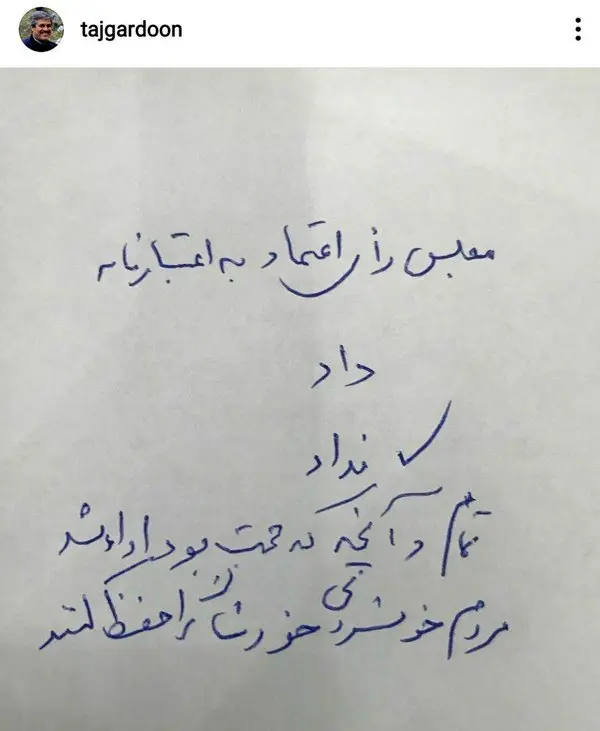 tajgardoon
مجلس رأی اعتماد به اعتبارنامه
داد
✓ نداد
تمام و آنچه که حجت بود اداء شد
مردم خونسردی خودشان را حفظ کنند